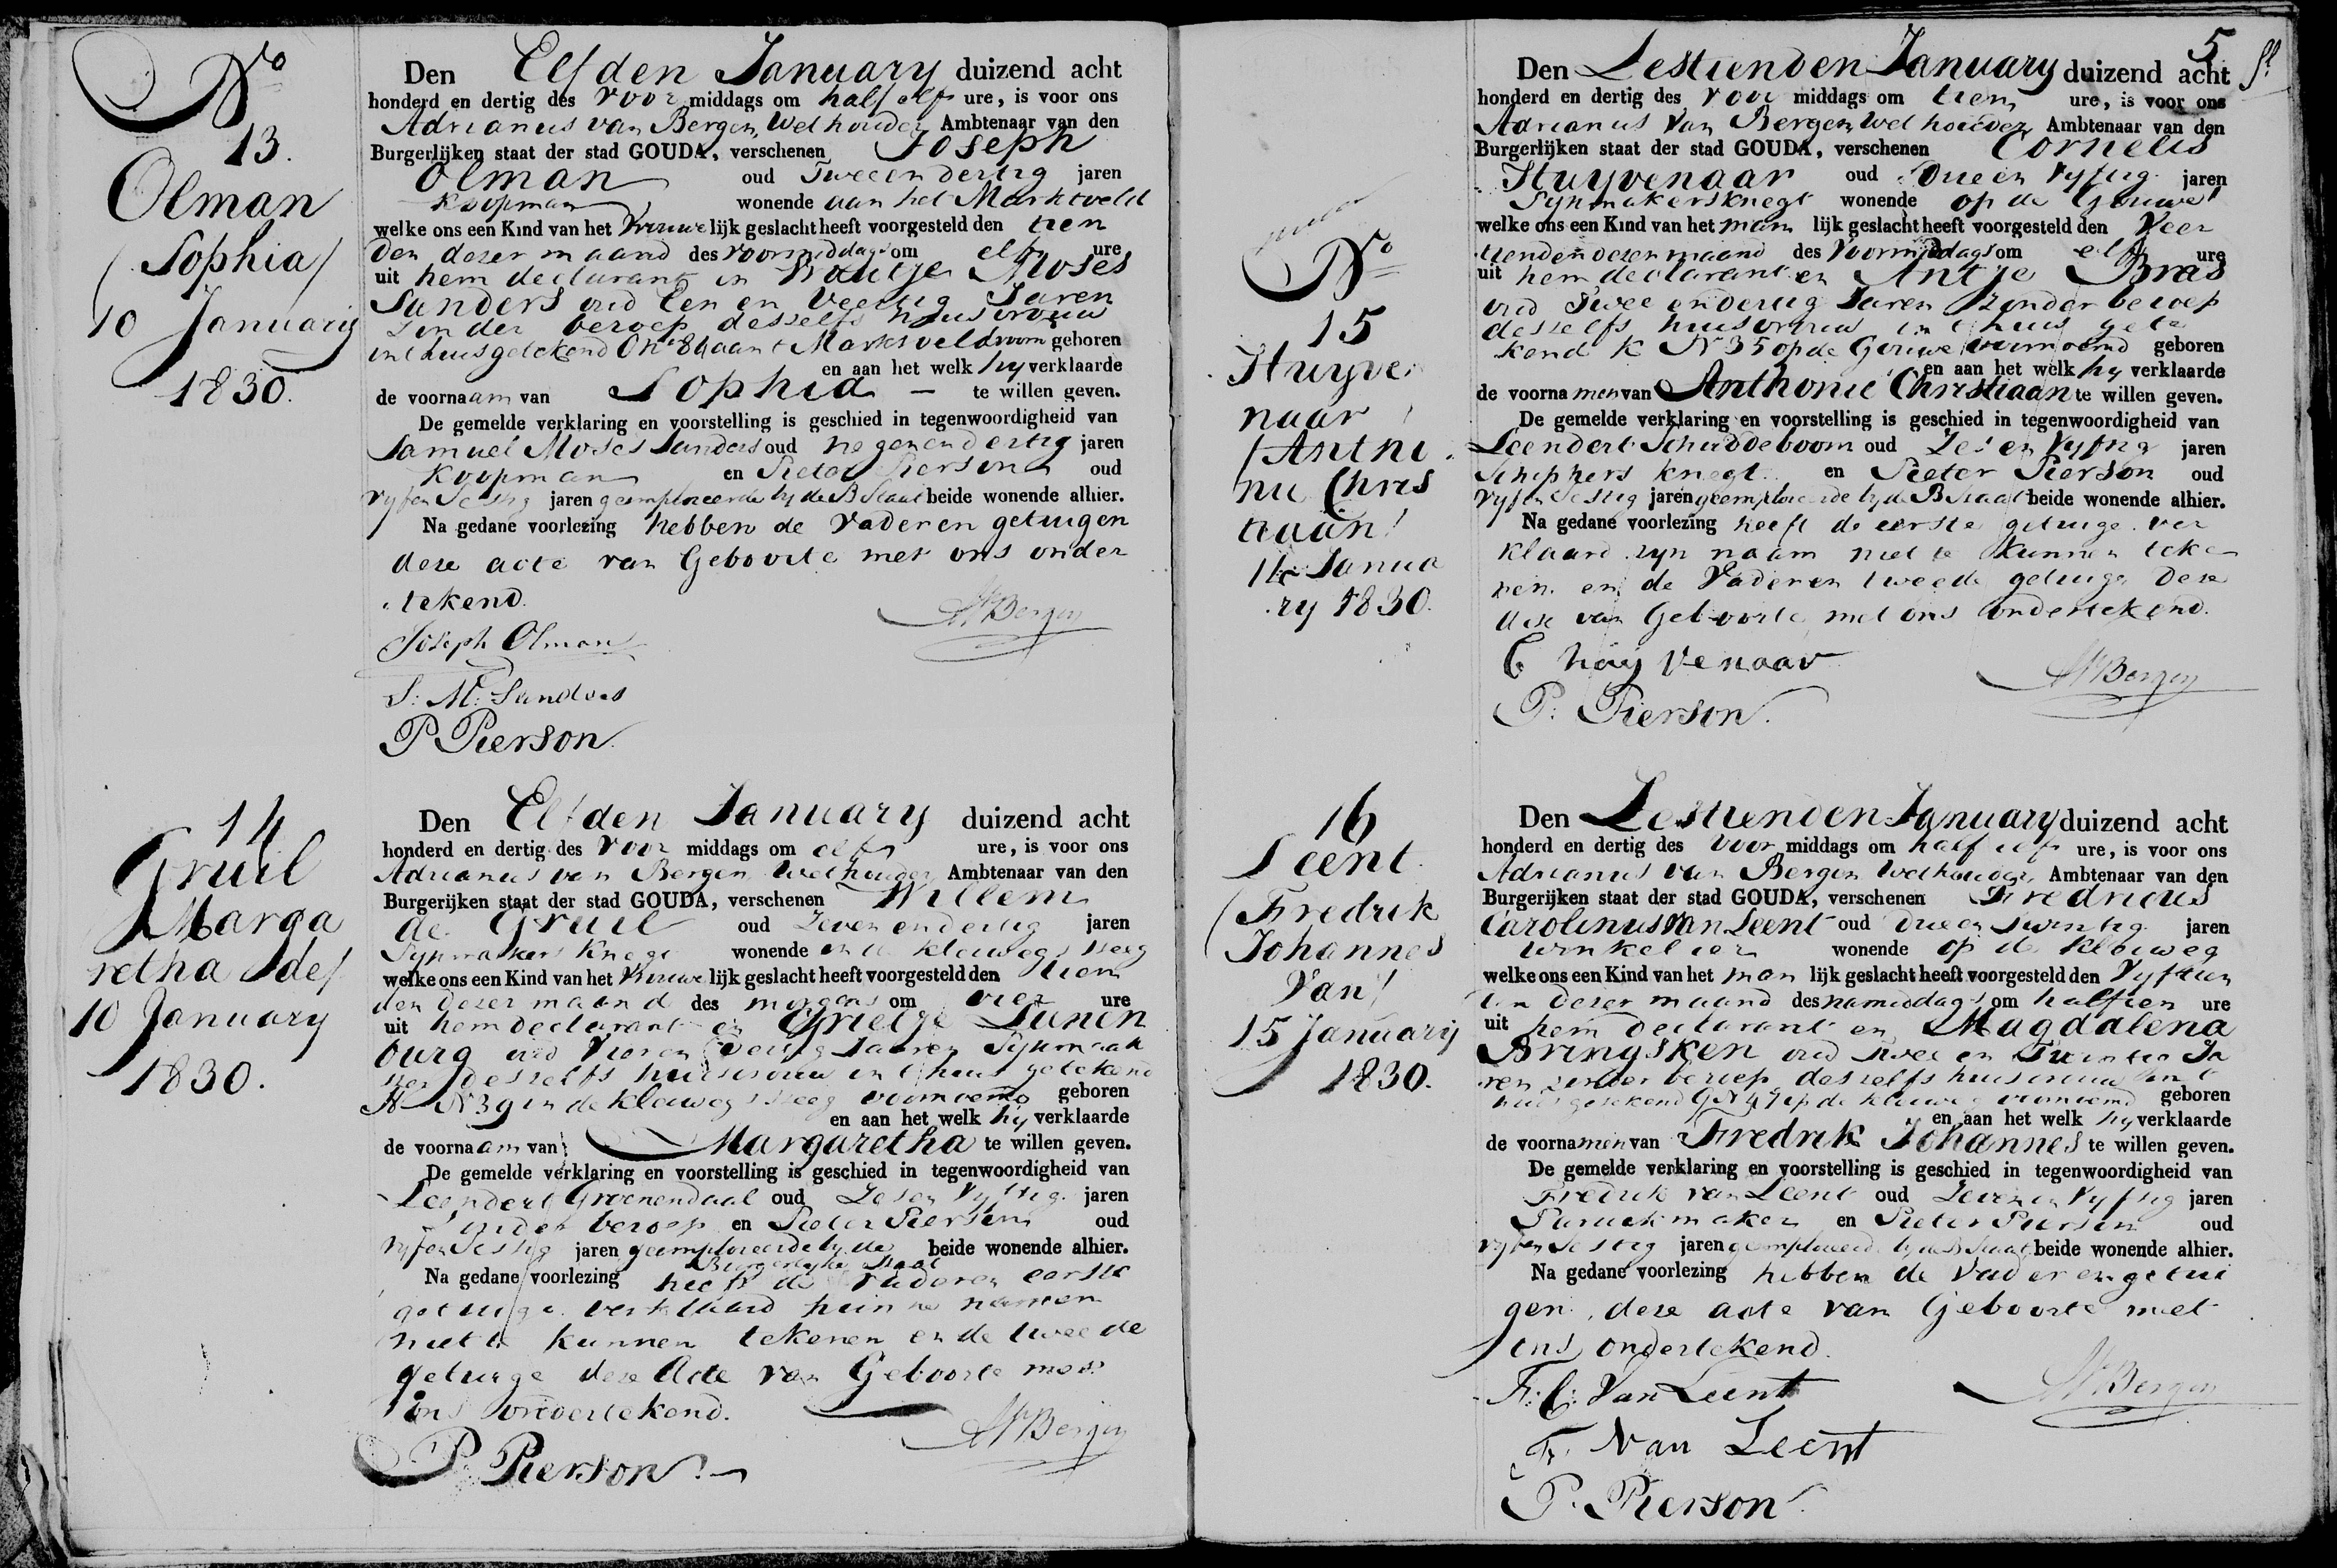 No
13.
Olman
/Sophia/
10 January
1830.
Den Elfden January duizend acht
honderd en dertig des voor middags om half elf ure, is voor ons
Adrianus van Bergen, Wethouder Ambtenaar van den
Burgerlijken staat der stad GOUDA, verschenen Joseph
Olman oud Tweeendertig jaren
Koopman wonende aan het Marktveld
welke ons een Kind van het Vrouwe lijk geslacht heeft voorgesteld den tien
den dezer maand des voormiddags om elf ure
uit hem declarant en Moses
Sanders oud Een en Veertig Jaren
zonder beroep desselfs huisvrouw
in t huis getekend O No 86 aan t Marktveld voorn geboren
en aan het welk hy verklaarde
de voornaam van Sophia – te willen geven.
De gemelde verklaring en voorstelling is geschied in tegenwoordigheid van
Samuel Moses Sanders oud negenendertig jaren
Koopman en Pieter Pierson oud
vyfenSestig jaren geemploieerde by de B Staat beide wonende alhier.
Na gedane voorlezing hebben de Vader en getuigen
deze acte van Geboorte met ons onder
tekend.
AVBergen
Joseph Olman
S: M: Sanders
P Pierson
14
Gruil
Marga
retha /de/
10 January
1830.
Den Elfden January duizend acht
honderd en dertig des Voor middags om elf ure, is voor ons
Adrianus van Bergen Wethouder Ambtenaar van den
Burgerijken staat der stad GOUDA, verschenen Willem
de Gruil oud Zevenendertig jaren
Pypmakers Knegt wonende in de Kleiwegs steeg
welke ons een Kind van het Vrouwe lijk geslacht heeft voorgesteld den tien
den dezer maand des morgens om vier ure
uit hem declarant en Grietje Lunen
burg oud Vier en Jaaren Pypmaak
ster desselfs huisvrouw in t huis getekend
No 39 in de Kleiwegs steeg voornoemd geboren
en aan het welk hy verklaarde
de voornaam van Margaretha te willen geven.
De gemelde verklaring en voorstelling is geschied in tegenwoordigheid van
Leendert Groenendaal oud Zes en Vyftig jaren
zonder beroep en Pieter Pierson oud
vyfenSestig jaren geemploieerde by de beide wonende alhier.
Burgerlyke Staat
Na gedane voorlezing heeft de Vader en eerste
getuige verklaard hunne namen
niet te kunnen tekenen en de tweede
getuige deze Acte van Geboorte met
ons ondertekend.
AVBergen
P Pierson
5
No
15
Huyve
naar
/Antho
nie Chris
tiaan/
14 Janua
ry 1830.
Den Zestienden January duizend acht
honderd en dertig des voor middags om tien ure, is voor ons
Adrianus Van Bergen Wethouder Ambtenaar van den
Burgerlijken staat der stad GOUDA, verschenen Cornelis
Huyvenaar oud Drieen Vyftig jaren
Pypmakersknegt wonende op de Gouwe
welke ons een Kind van het man lijk geslacht heeft voorgesteld den Veer
tienden dezer maand des Voormiddags om elf ure
uit hem declarant en Antje Bras
oud Twee endertig Jaren zonder beroep
desselfs huisvrouw in t huis gete
kend K No 35 op de Gouwe voornoemd geboren
en aan het welk hy verklaarde
de voornamen van Anthonie Christiaan te willen geven.
De gemelde verklaring en voorstelling is geschied in tegenwoordigheid van
Leendert Schuddeboom oud Zes en Vyftig jaren
Schippers knegt en Pieter Pierson oud
vyfenSestig jaren geemploieerde by de B Staat beide wonende alhier.
Na gedane voorlezing heeft de eerste getuige ver
klaard zyn naam niet te kunnen teke
nen en de Vader en tweede getuige deze
acte van Geboorte met ons ondertekend.
C huyvenaar
AVBergen
P: Pierson.
16
Leent
/Fredrik
Johannes
Van/
15 January
1830.
Den Zestienden January duizend acht
honderd en dertig des Voor middags om half elf ure, is voor ons
Adrianus van Bergen Wethouder Ambtenaar van den
Burgerijken staat der stad GOUDA, verschenen Fredricus
Carolinus van Leent oud Drieen twintig jaren
Winkelier wonende op de Kleiweg
welke ons een Kind van het man lijk geslacht heeft voorgesteld den Vyftien
den dezer maand des namiddags om half tien ure
uit hem declarant en Magdalena
oud Twee en Twintig Ja
ren zonder beroep desselfs huisvrouw in t
huis getekend No 47 op de Kleiweg voornoemd geboren
en aan het welk hy verklaarde
de voornamen van Fredrik Johannes te willen geven.
De gemelde verklaring en voorstelling is geschied in tegenwoordigheid van
Fredrik van Leent oud Zeven en Vyftig jaren
Paruikmaker en Pieter Pierson oud
vyfenSestig jaren geemploieerde by de B Staat beide wonende alhier.
Na gedane voorlezing hebben de Vader en getui
gen deze acte van Geboorte met
ons ondertekend.
F: C: Van Leent
AVBergen
F. Van Leent
P. Pierson